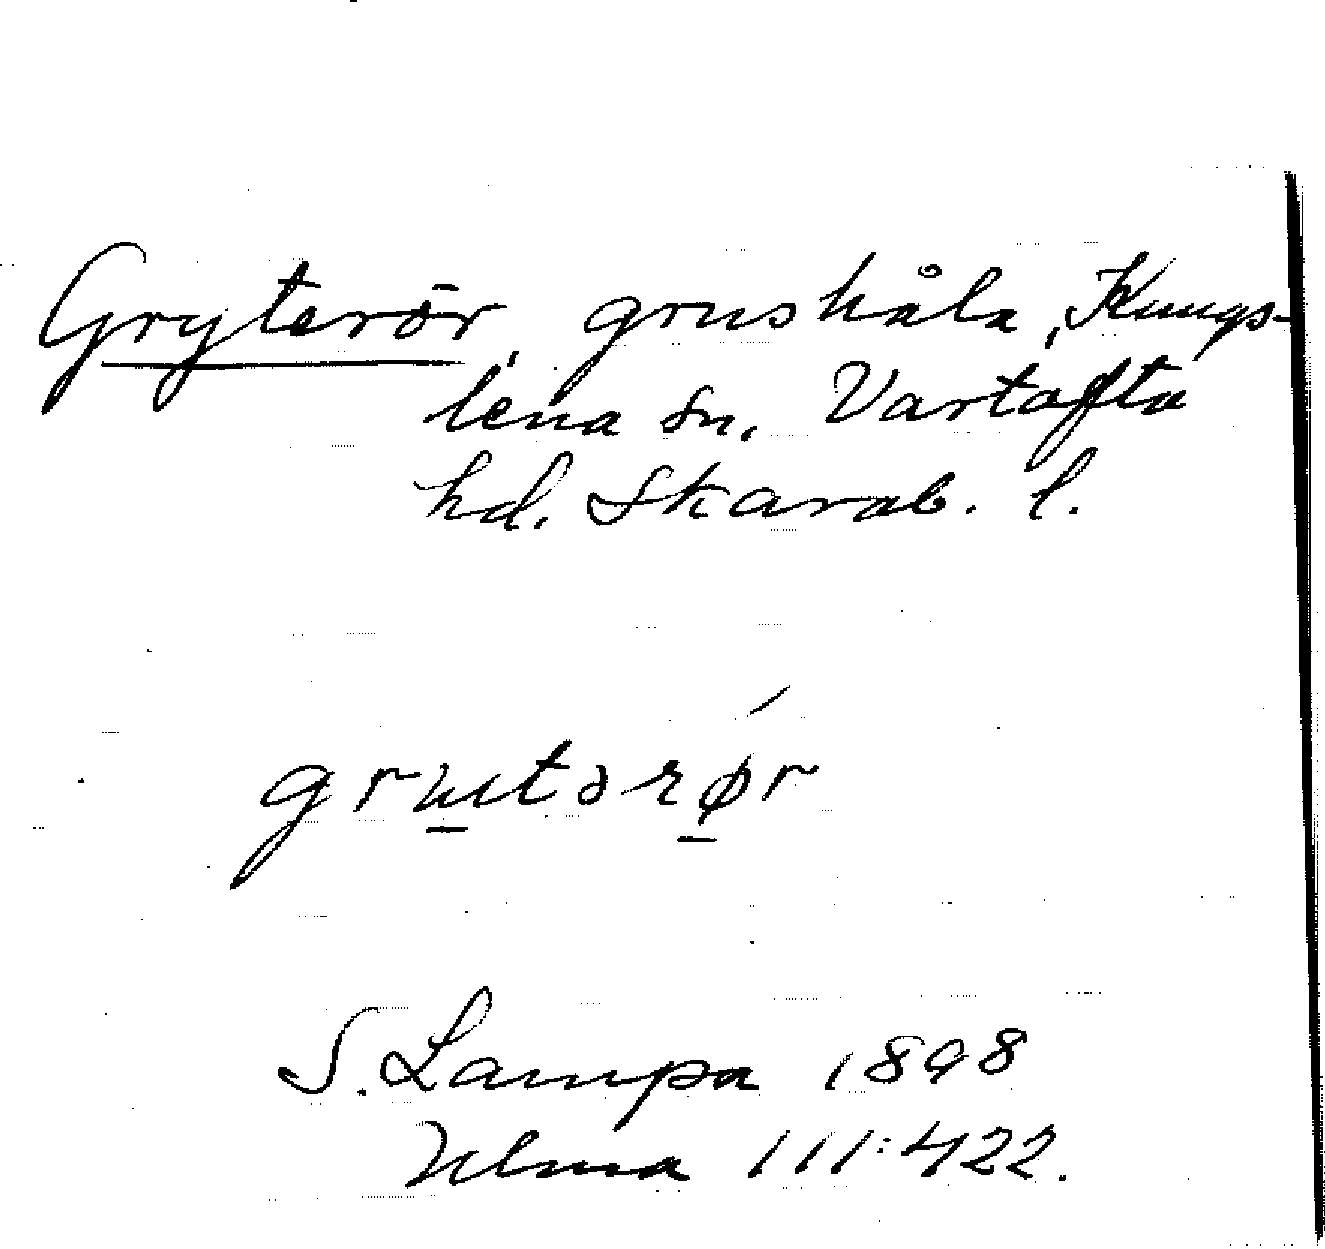 Gryterör, grushåla, Kungs-
lena sn. Vartofta
hd. Skarab. l.
grutərør
S. Lampa 1898
Ulma 111:422.